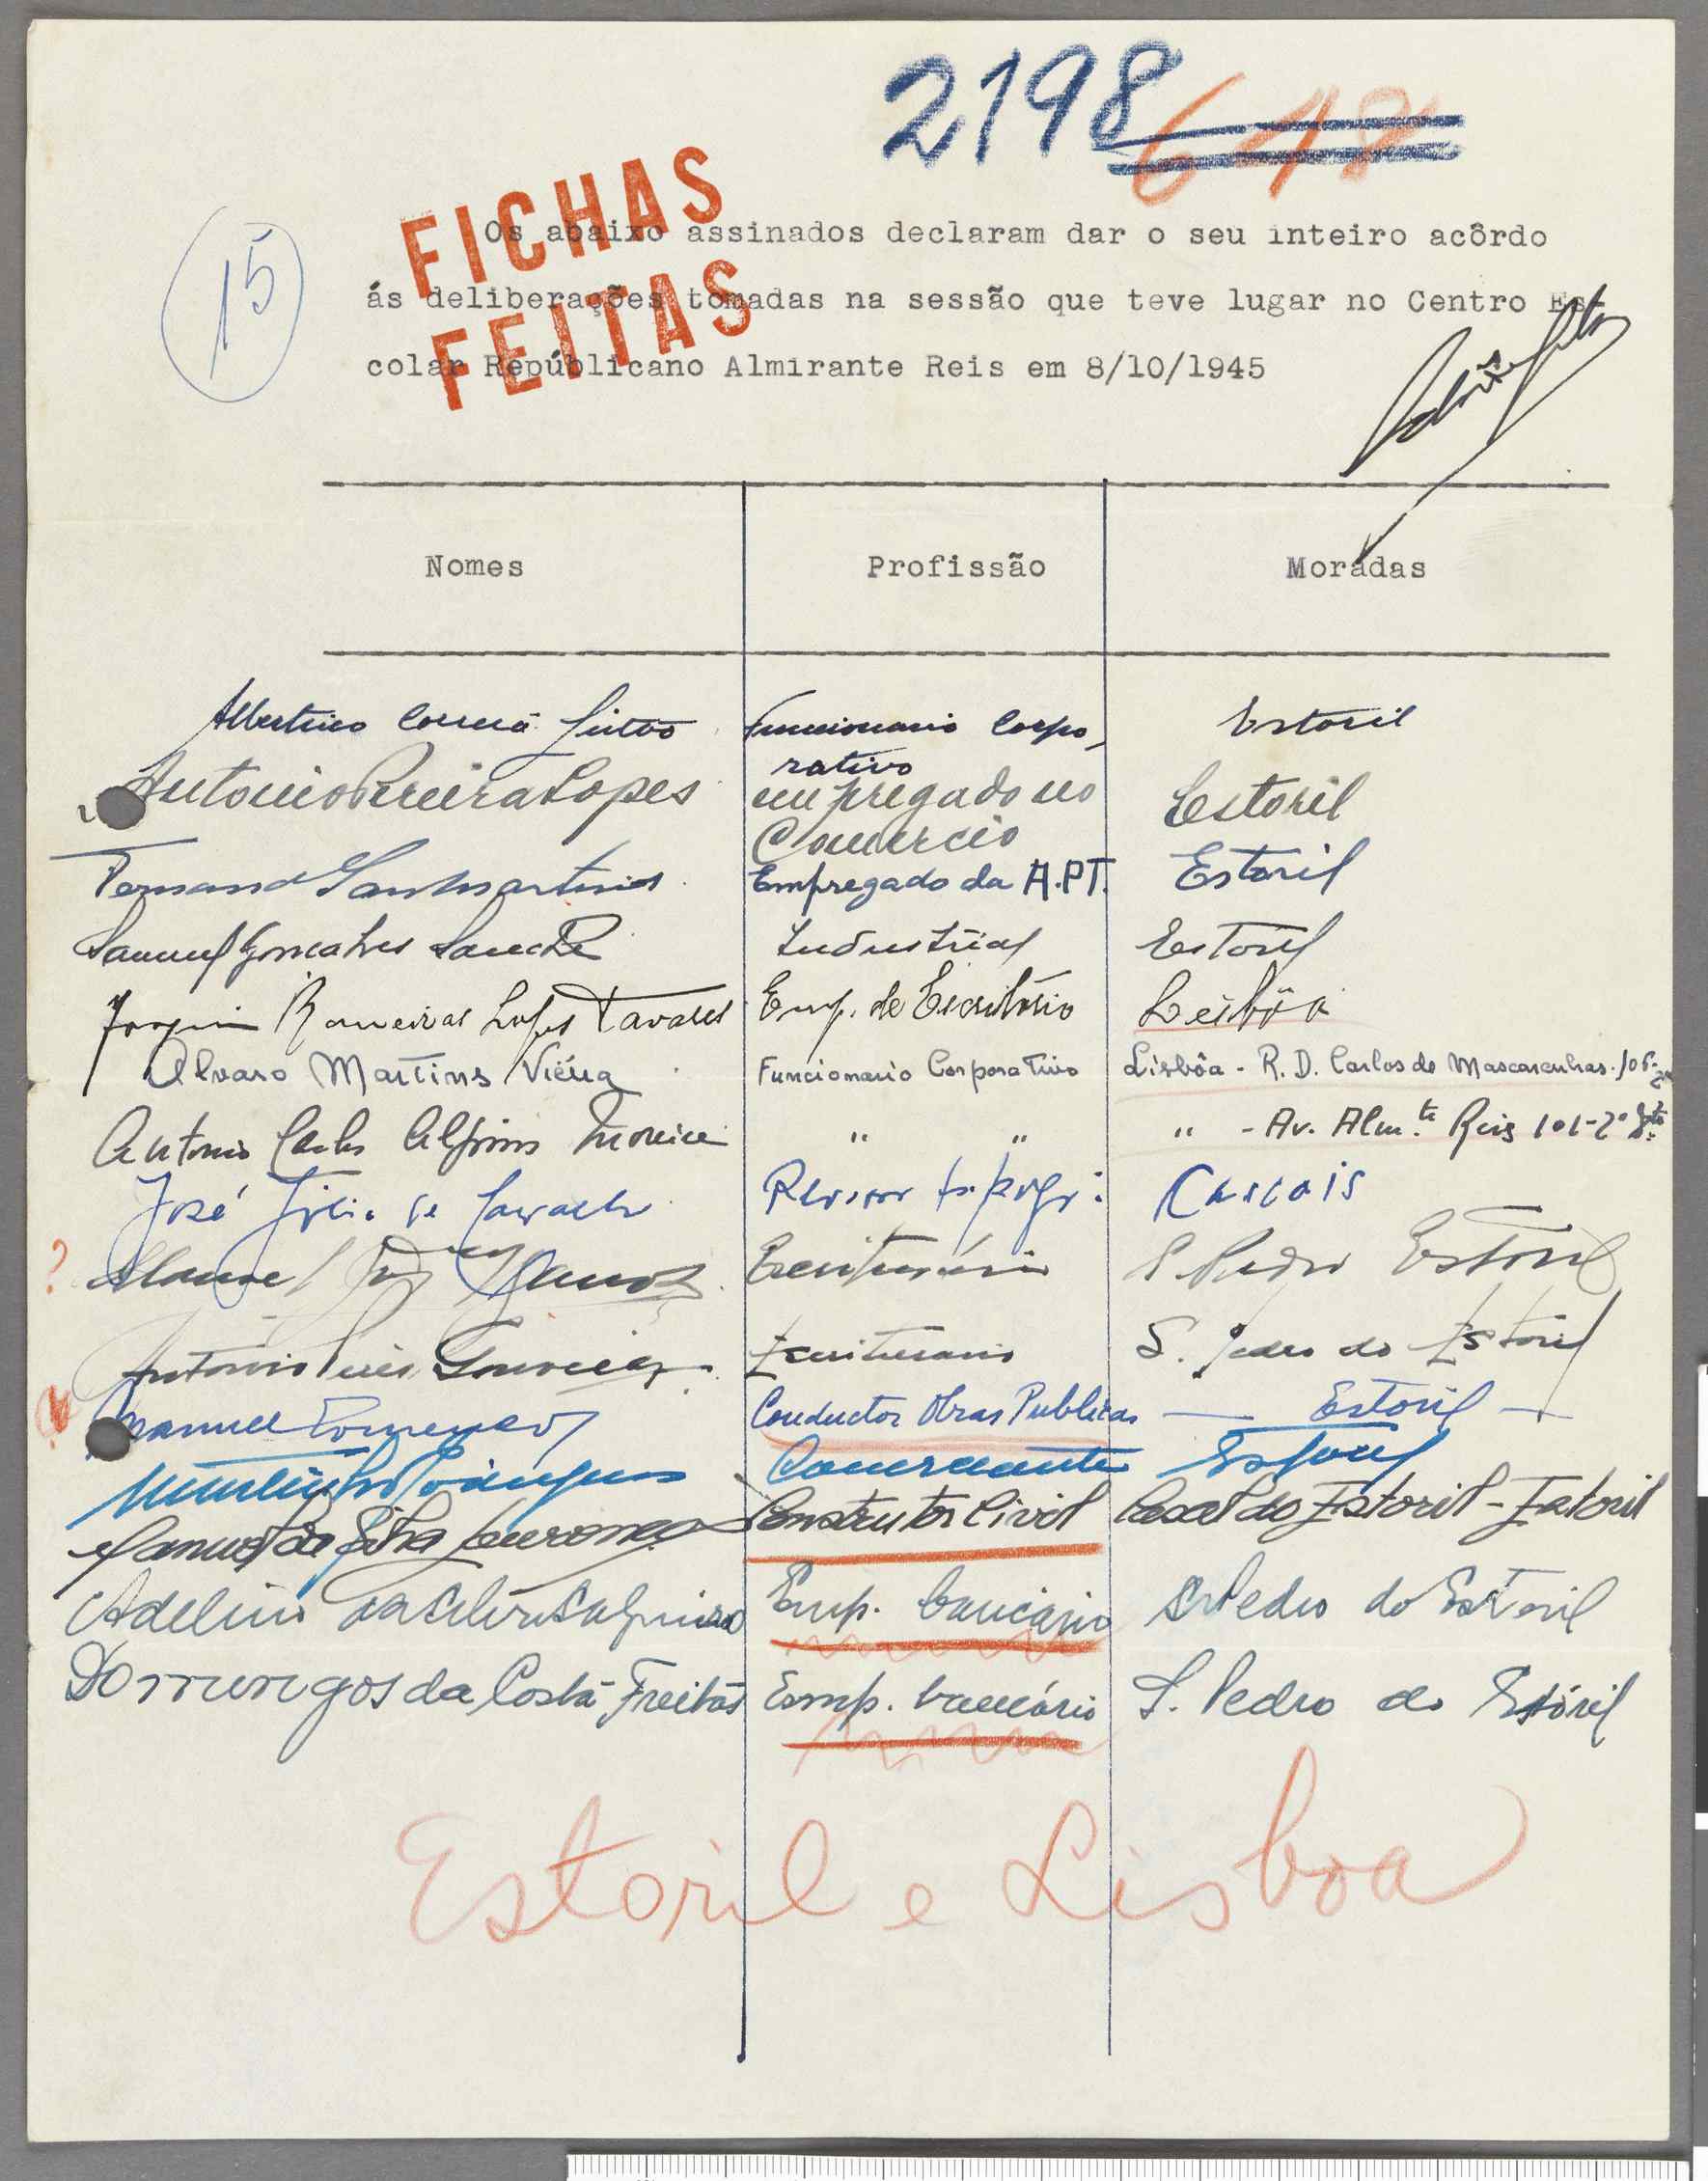 2198 648
15
FICHAS
FEITAS
Os abaixo assinados declaram dar o seu inteiro acôrdo
ás deliberações tomadas na sessão que teve lugar no Centro Es-
colar Repúblicano Almirante Reis em 8/10/1945
Nomes Profissão Moradas
Corrêa Funcionario Corpo- Estoril
rativo
Antonio Pereira Lopes empregado no Estoril
Comercio
Fernando Sanmartinho Empregado da A.P.T. Estoril
Samuel Gonçalves Sanche Industrial Estoril
Joaquim Lopes Tavares Emp. de Escritório Lisbôa
Alvaro Martins Viéira Funcionario Corporativo Lisbôa - R. D. Carlos de Mascarenhas.
Antonio Moreira " " " - Av. Alm.te Reis 101-2º
José de Revisor Cascais
? Manuel Escriturário S. Pedro Estoril
Antonio Escriturario S. Pedro do Estoril
Manuel Conductor Obras Publicas — Estoril —
Comerciante Estoril
Manuel da Silva Construtor Civil Casal do Estoril - Estoril
Adelino da Silva Salgueiro Emp. bancário S. Pedro do Estoril
Domingos da Costa Freitas Emp. bancário S. Pedro do Estóril
Estoril e Lisboa